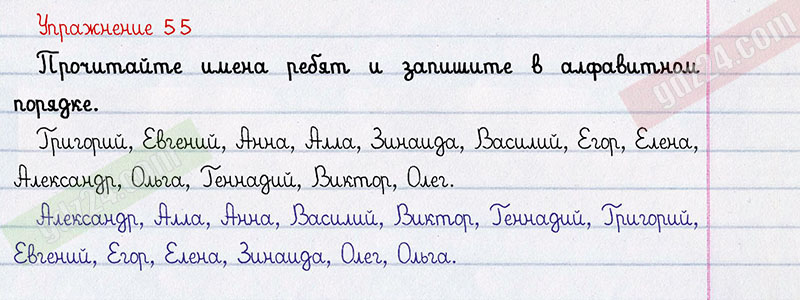 Упражнение 55
Прочитайте имена ребят и запишите в алфавитном
порядке.
Григорий, Евгений, Анна, Алла, Зинаида, Василий, Егор, Елена,
Александр, Ольга, Геннадий, Виктор, Олег.
Александр, Алла, Анна, Василий, Виктор, Геннадий, Григорий,
Евгений, Егор, Елена, Зинаида, Олег, Ольга.
gdz24.com
gdz24.com